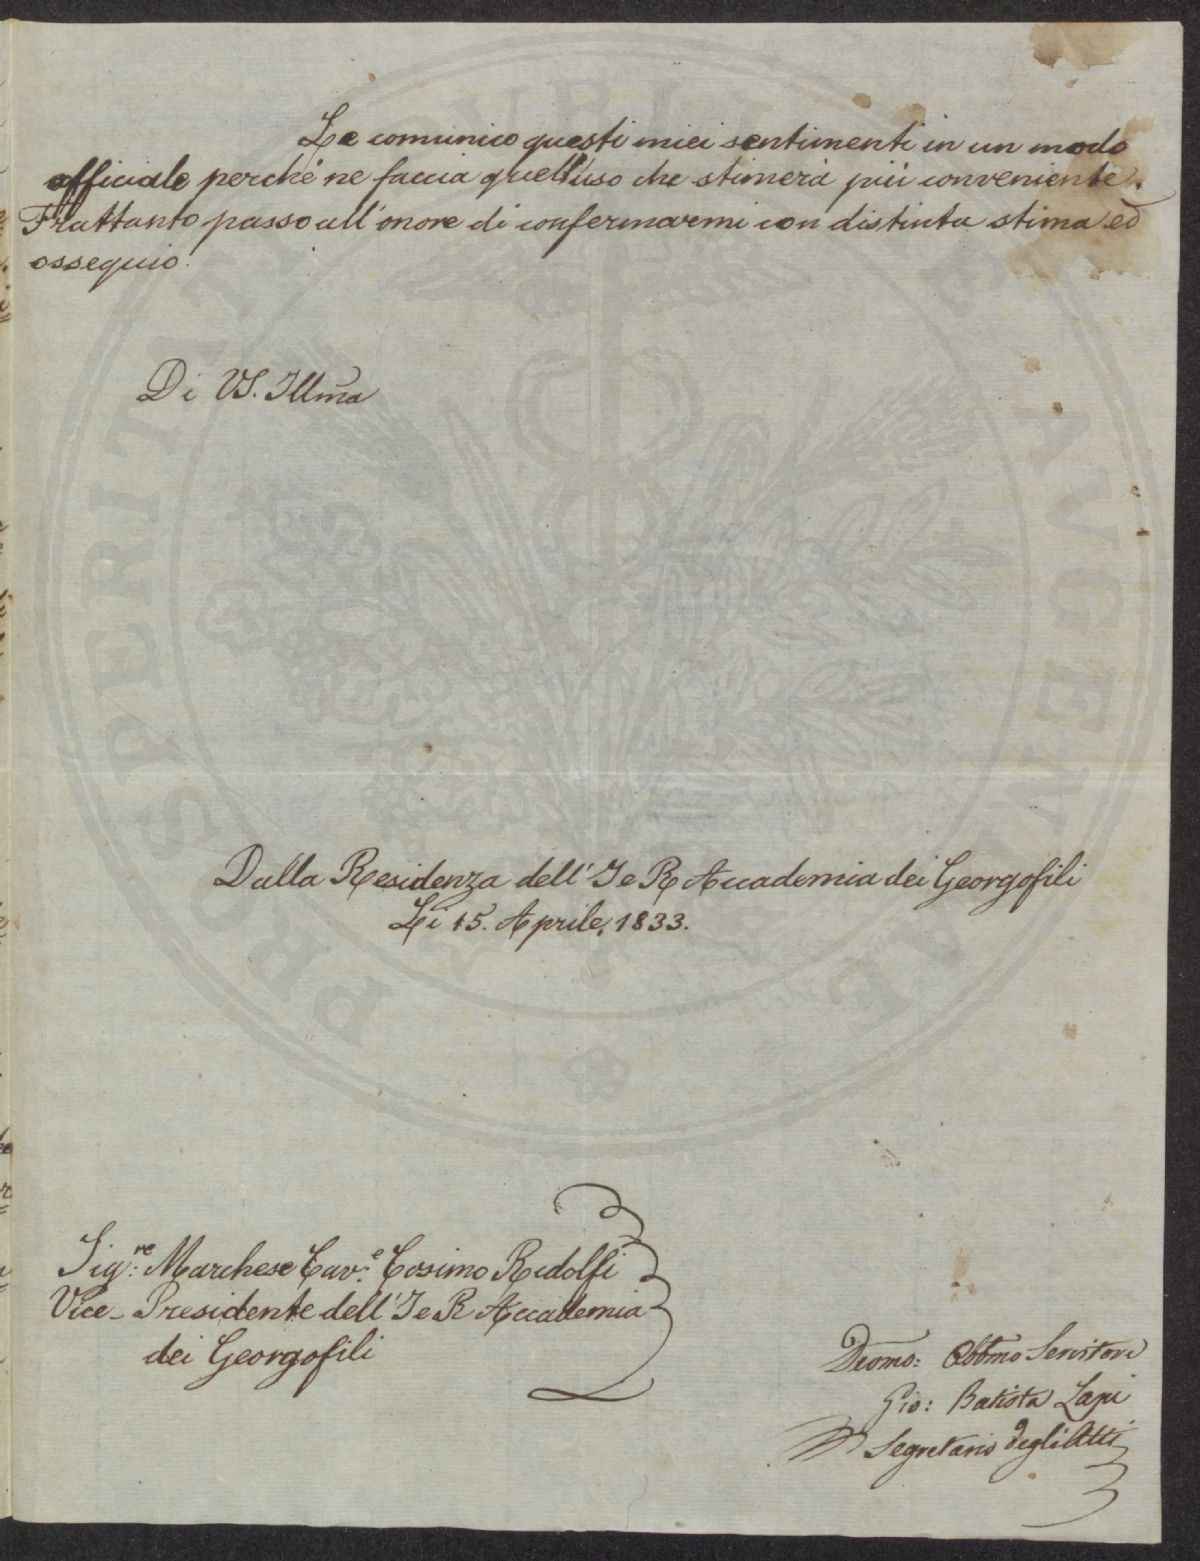 Le comunico questi miei sentimenti in un modo
officiale perchè ne faccia quell'uso che stimerà più conveniente.
Frattanto passo all'onore di confermarmi con distinta stima ed
ossequio.
Di VS. Illma
Dalla Residenza dell'I e R Accademia dei Georgofili
Li 15. Aprile, 1833.
Sig:re Marchese Cav:e Cosimo Ridolfi
Vice-Presidente dell'I e R Accademia
dei Georgofili
Devmo: Obbmo Servitore
Gio: Batista Lapi
Segretario degli Atti
PROSPERITATI PVBLICAE AVGENDAE